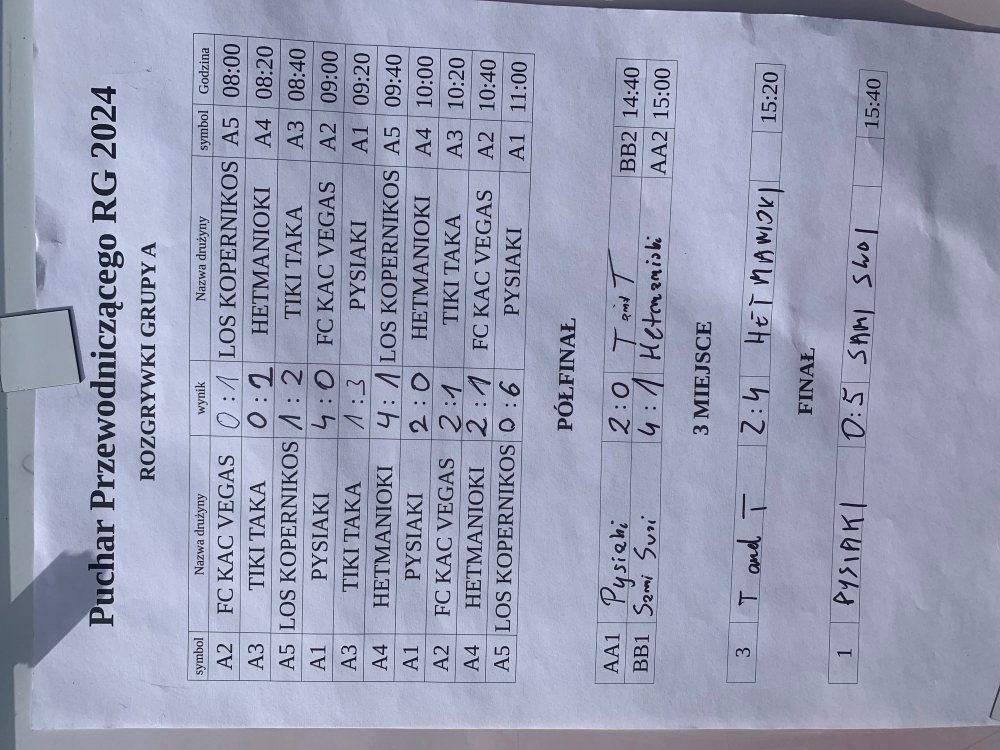 Puchar Przewodniczącego RG 2024
ROZGRYWKI GRUPY A
symbol Nazwa drużyny wynik Nazwa drużyny symbol Godzina
A2 FC KAC VEGAS 0:1 LOS KOPERNIKOS A5 08:00
A3 TIKI TAKA 0:2 HETMANIOKI A4 08:20
A5 LOS KOPERNIKOS 1:2 TIKI TAKA A3 08:40
A1 PYSIAKI 4:0 FC KAC VEGAS A2 09:00
A3 TIKI TAKA 1:3 PYSIAKI A1 09:20
A4 HETMANIOKI 4:1 LOS KOPERNIKOS A5 09:40
A1 PYSIAKI 2:0 HETMANIOKI A4 10:00
A2 FC KAC VEGAS 2:1 TIKI TAKA A3 10:20
A4 HETMANIOKI 2:1 FC KAC VEGAS A2 10:40
A5 LOS KOPERNIKOS 0:6 PYSIAKI A1 11:00
PÓŁFINAŁ
AA1 Pysiaki 2:0 T and T BB2 14:40
BB1 Sami Swoi 4:1 Hetmanioki AA2 15:00
3 MIEJSCE
3 T and T 2:4 HETMANIOKI 15:20
FINAŁ
1 PYSIAKI 0:5 SAMI SWOI 15:40